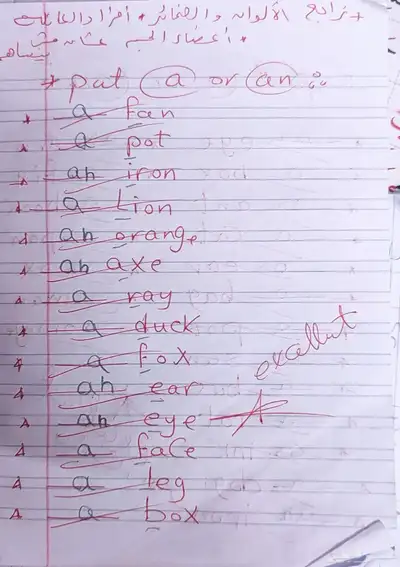 نراجع الألوان والضمائر + أفراد العائلة
+ أعضاء الجسم عشان
* put a or an :
a fan
a pot
an iron
a Lion
an orange
an axe
a ray
a duck
a fox
an ear
excellent
an eye
a face
a leg
a box